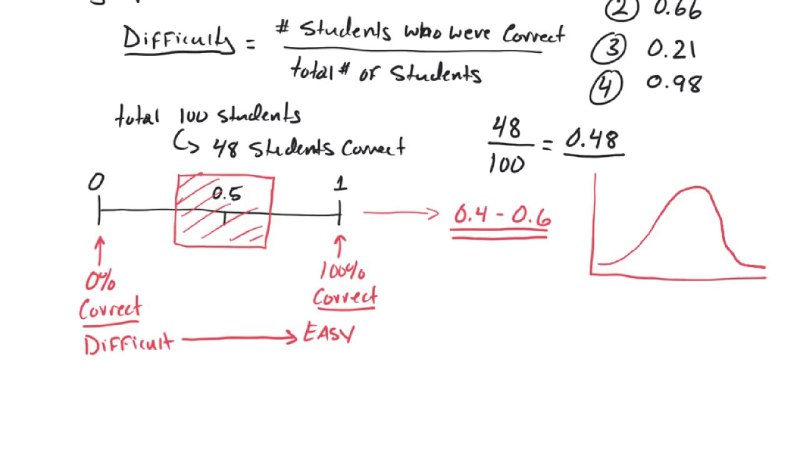 ② 0.66
Difficulty = # Students who were Correct
total # of Students
③ 0.21
④ 0.98
total 100 students
48 Students Correct
48
100
= 0.48
0
0.5
1
0.4 - 0.6
0%
Correct
100%
Correct
Difficult
EASY